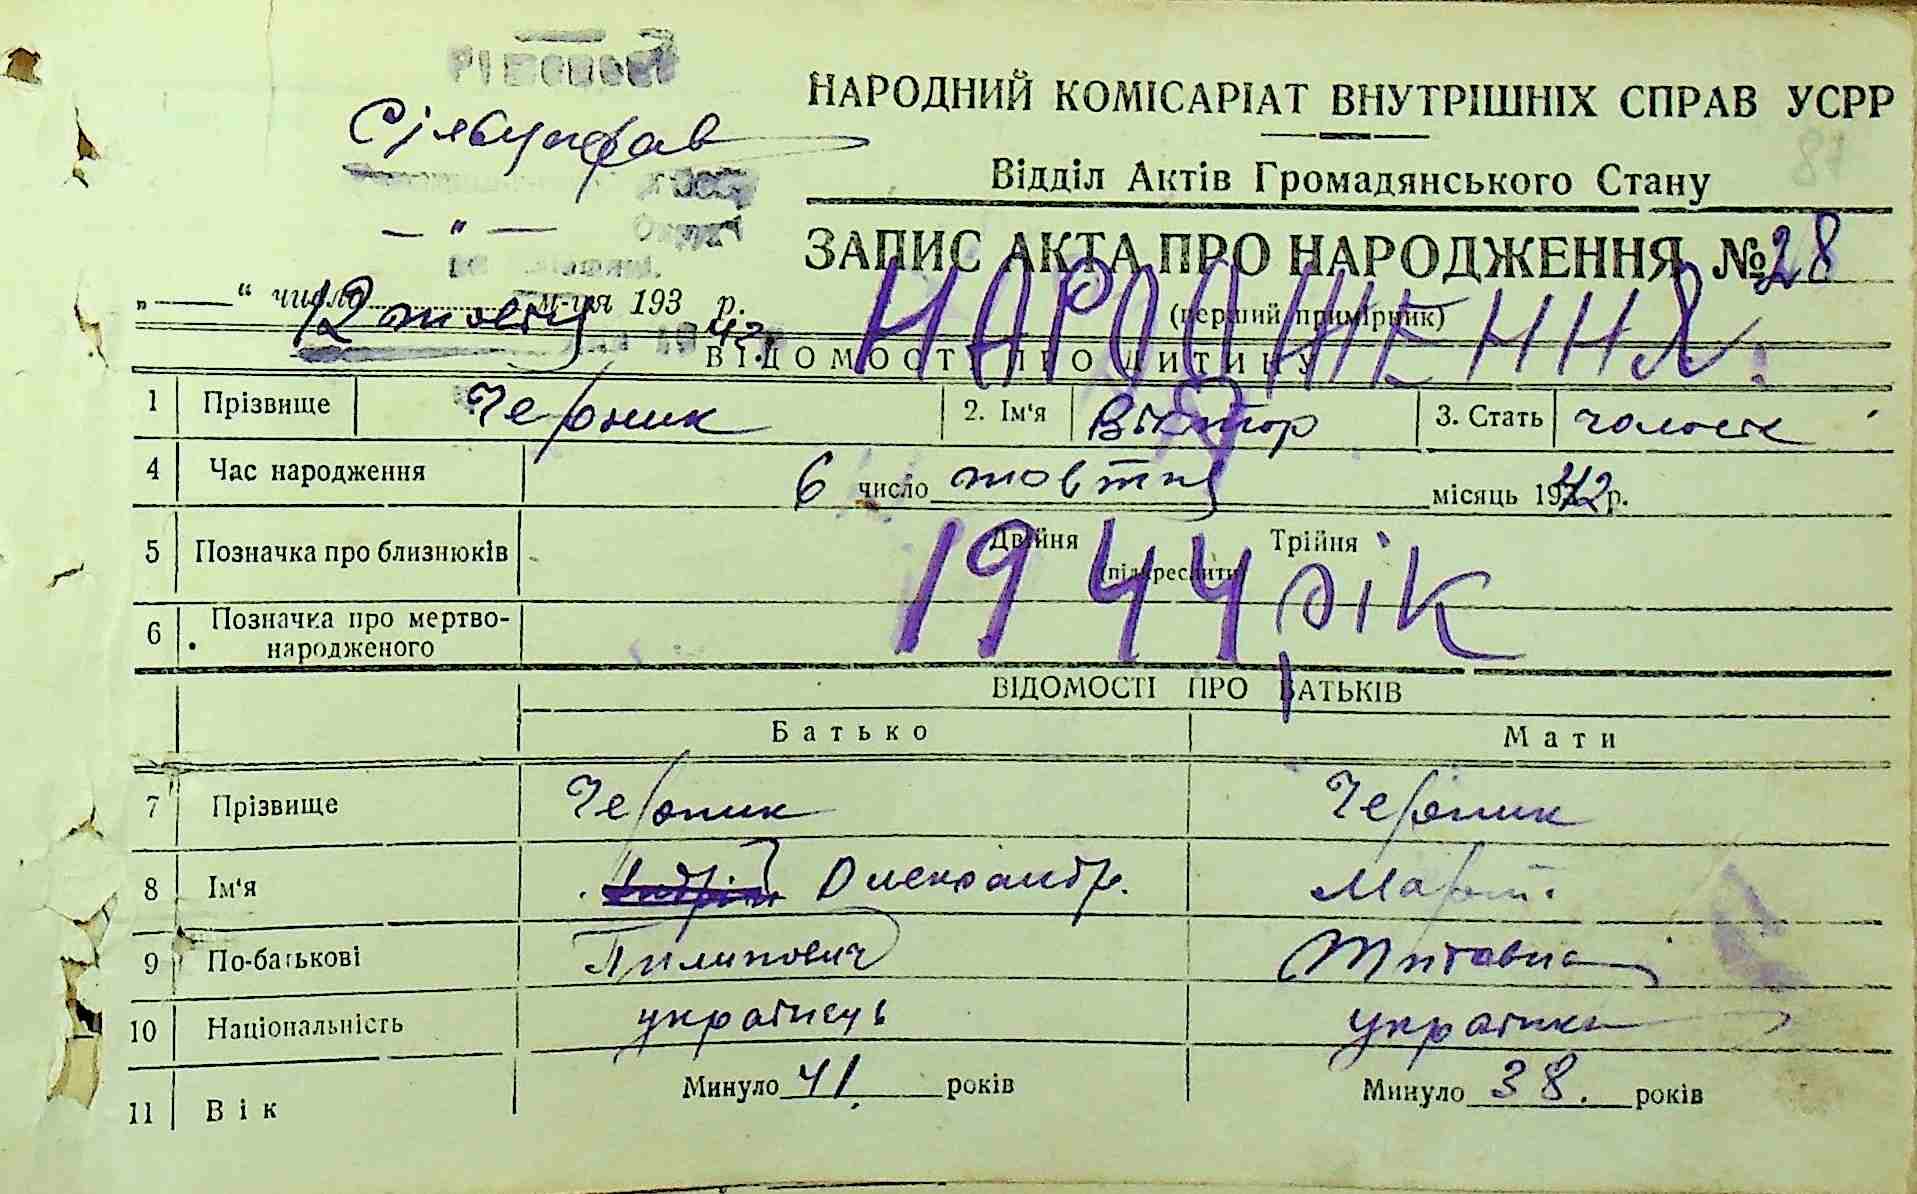 НАРОДНИЙ КОМІСАРІАТ ВНУТРІШНІХ СПРАВ УСРР
Відділ Актів Громадянського Стану
ЗАПИС АКТА ПРО НАРОДЖЕННЯ №28
(перший примірник)
„—“ число м-ця 193 р.
12 жовтня 42 р.
НАРОДЖЕННЯ
ВІДОМОСТІ ПРО ДИТИНУ
1 Прізвище Черник 2. Ім'я Віктор 3. Стать
4 Час народження 6 число жовтня місяць 1942 р.
5 Позначка про близнюків Двійня Трійня
(підкреслити)
1944 рік
6 Позначка про мертво-
народженого
ВІДОМОСТІ ПРО БАТЬКІВ
Батько Мати
7 Прізвище Черник Черник
8 Ім'я Андрій Олександр.
9 По-батькові Пилипович Титовна
10 Національність українець українка
11 Вік Минуло 41 років Минуло 38. років